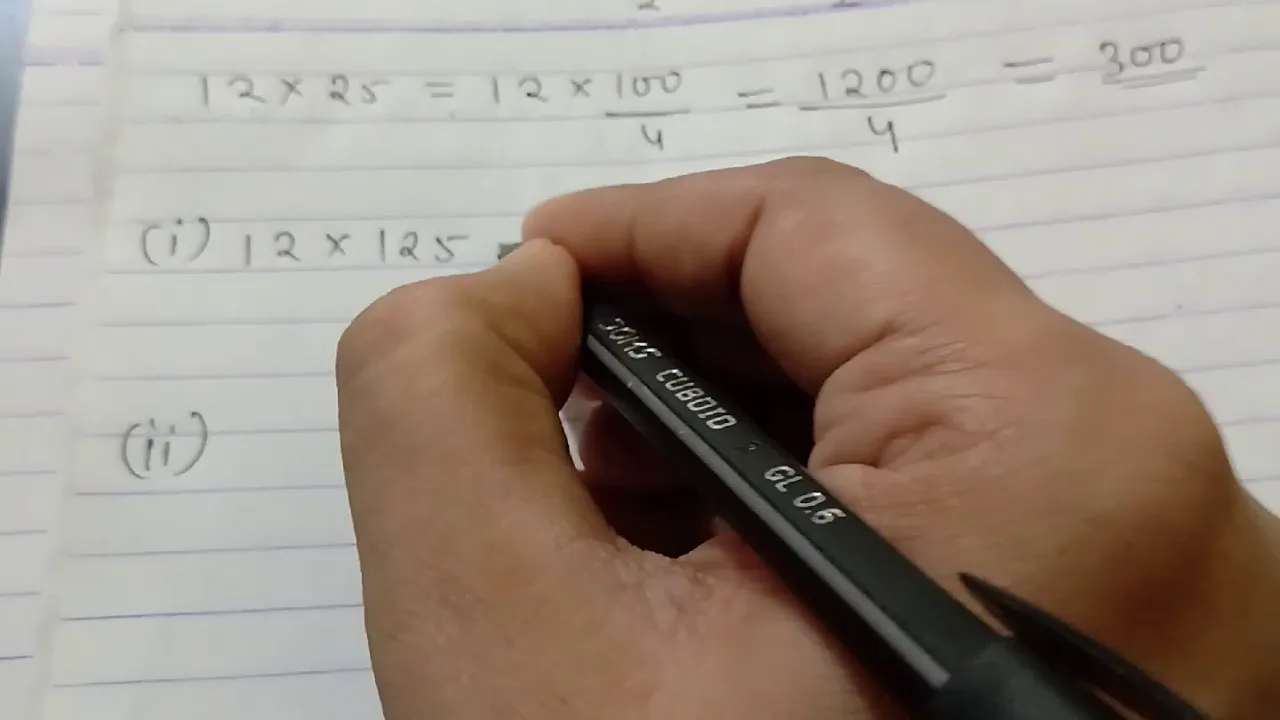 12 × 25 = 12 × 100/4 = 1200/4 = 300
(i) 12 × 125
(ii)
DOMS CUBOID GL 0.6